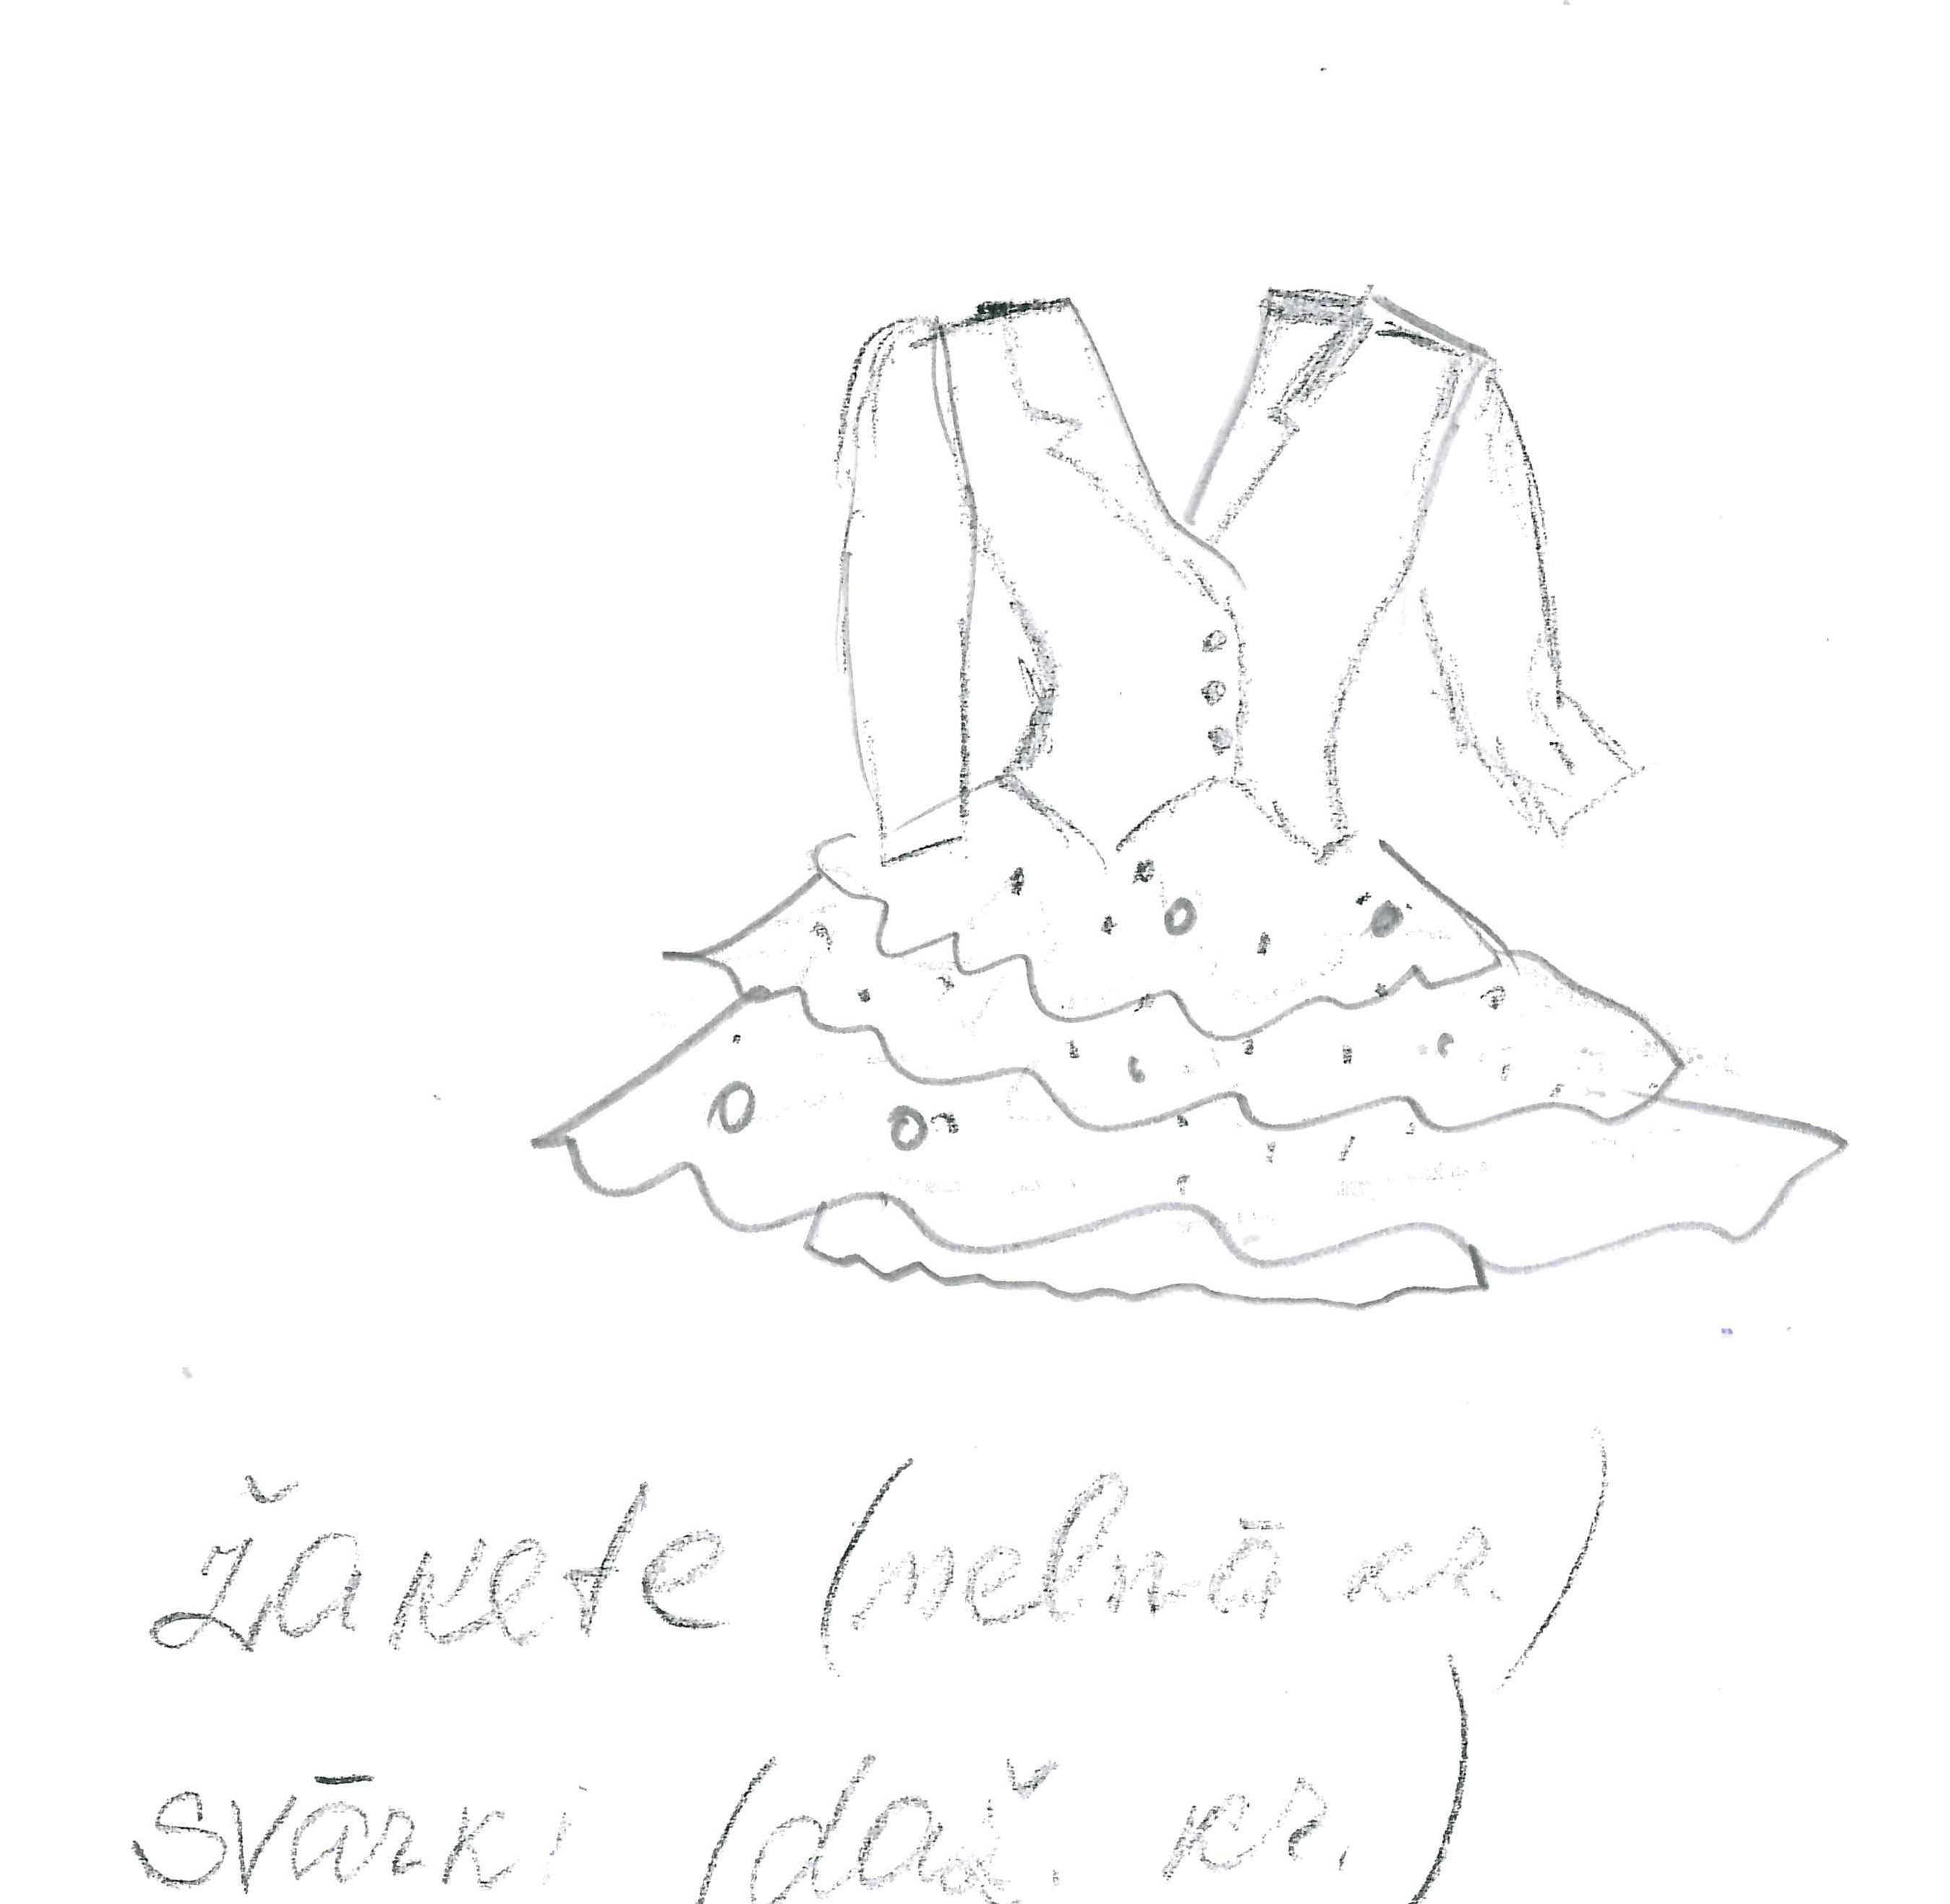 žakete (melnā kr.)
svārki (daž. kr.)